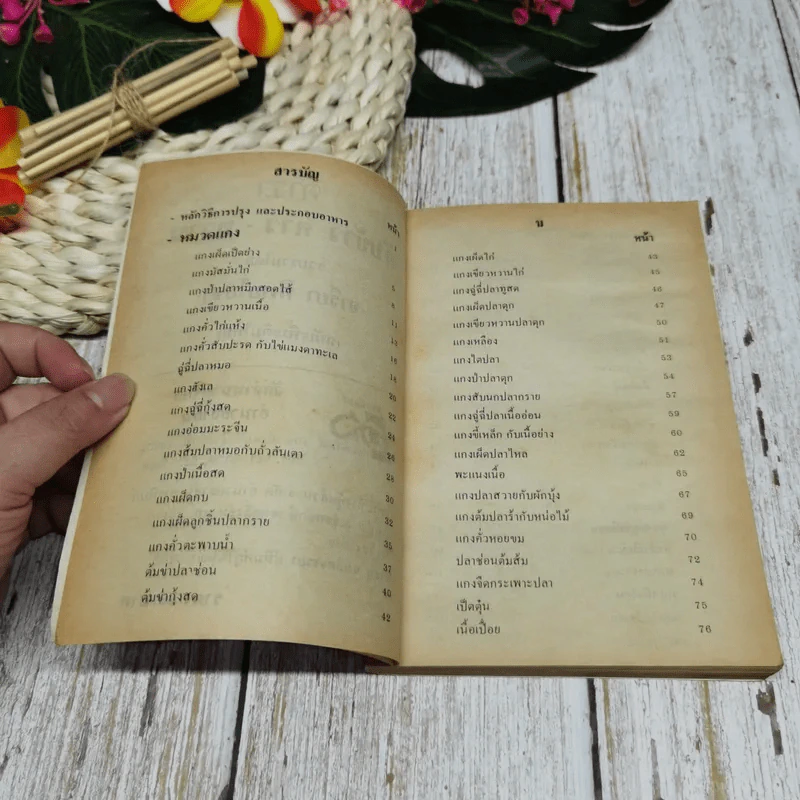 สารบัญ
หน้า
- หลักวิธีการปรุง และประกอบอาหาร 1
- หมวดแกง
แกงเผ็ดเป็ดย่าง 5
แกงมัสมั่นไก่ 8
แกงป่าปลาหมึกสอดไส้ 11
แกงเขียวหวานเนื้อ 13
แกงคั่วไก่แห้ง 16
แกงคั่วสับปะรด กับไข่แมงดาทะเล 18
ฉู่ฉี่ปลาหมอ 20
แกงฮังเล 22
แกงฉู่ฉี่กุ้งสด 24
แกงอ่อมมะระจีน 26
แกงส้มปลาหมอกับถั่วลันเตา 28
แกงป่าเนื้อสด 30
แกงเผ็ดกบ 32
แกงเผ็ดลูกชิ้นปลากราย 35
แกงคั่วตะพาบน้ำ 37
ต้มข่าปลาช่อน 40
ต้มข่ากุ้งสด 42
ข
หน้า
แกงเผ็ดไก่ 43
แกงเขียวหวานไก่ 45
แกงฉู่ฉี่ปลาทูสด 46
แกงเผ็ดปลาดุก 47
แกงเขียวหวานปลาดุก 50
แกงเหลือง 51
แกงไตปลา 53
แกงป่าปลาดุก 54
แกงสับนกปลากราย 57
แกงฉู่ฉี่ปลาเนื้ออ่อน 59
แกงขี้เหล็ก กับเนื้อย่าง 60
แกงเผ็ดปลาไหล 62
พะแนงเนื้อ 65
แกงปลาสวายกับผักบุ้ง 67
แกงต้มปลาร้ากับหน่อไม้ 69
แกงคั่วหอยขม 70
ปลาช่อนต้มส้ม 72
แกงจืดกระเพาะปลา 74
เป็ดตุ๋น 75
เนื้อเปื่อย 76